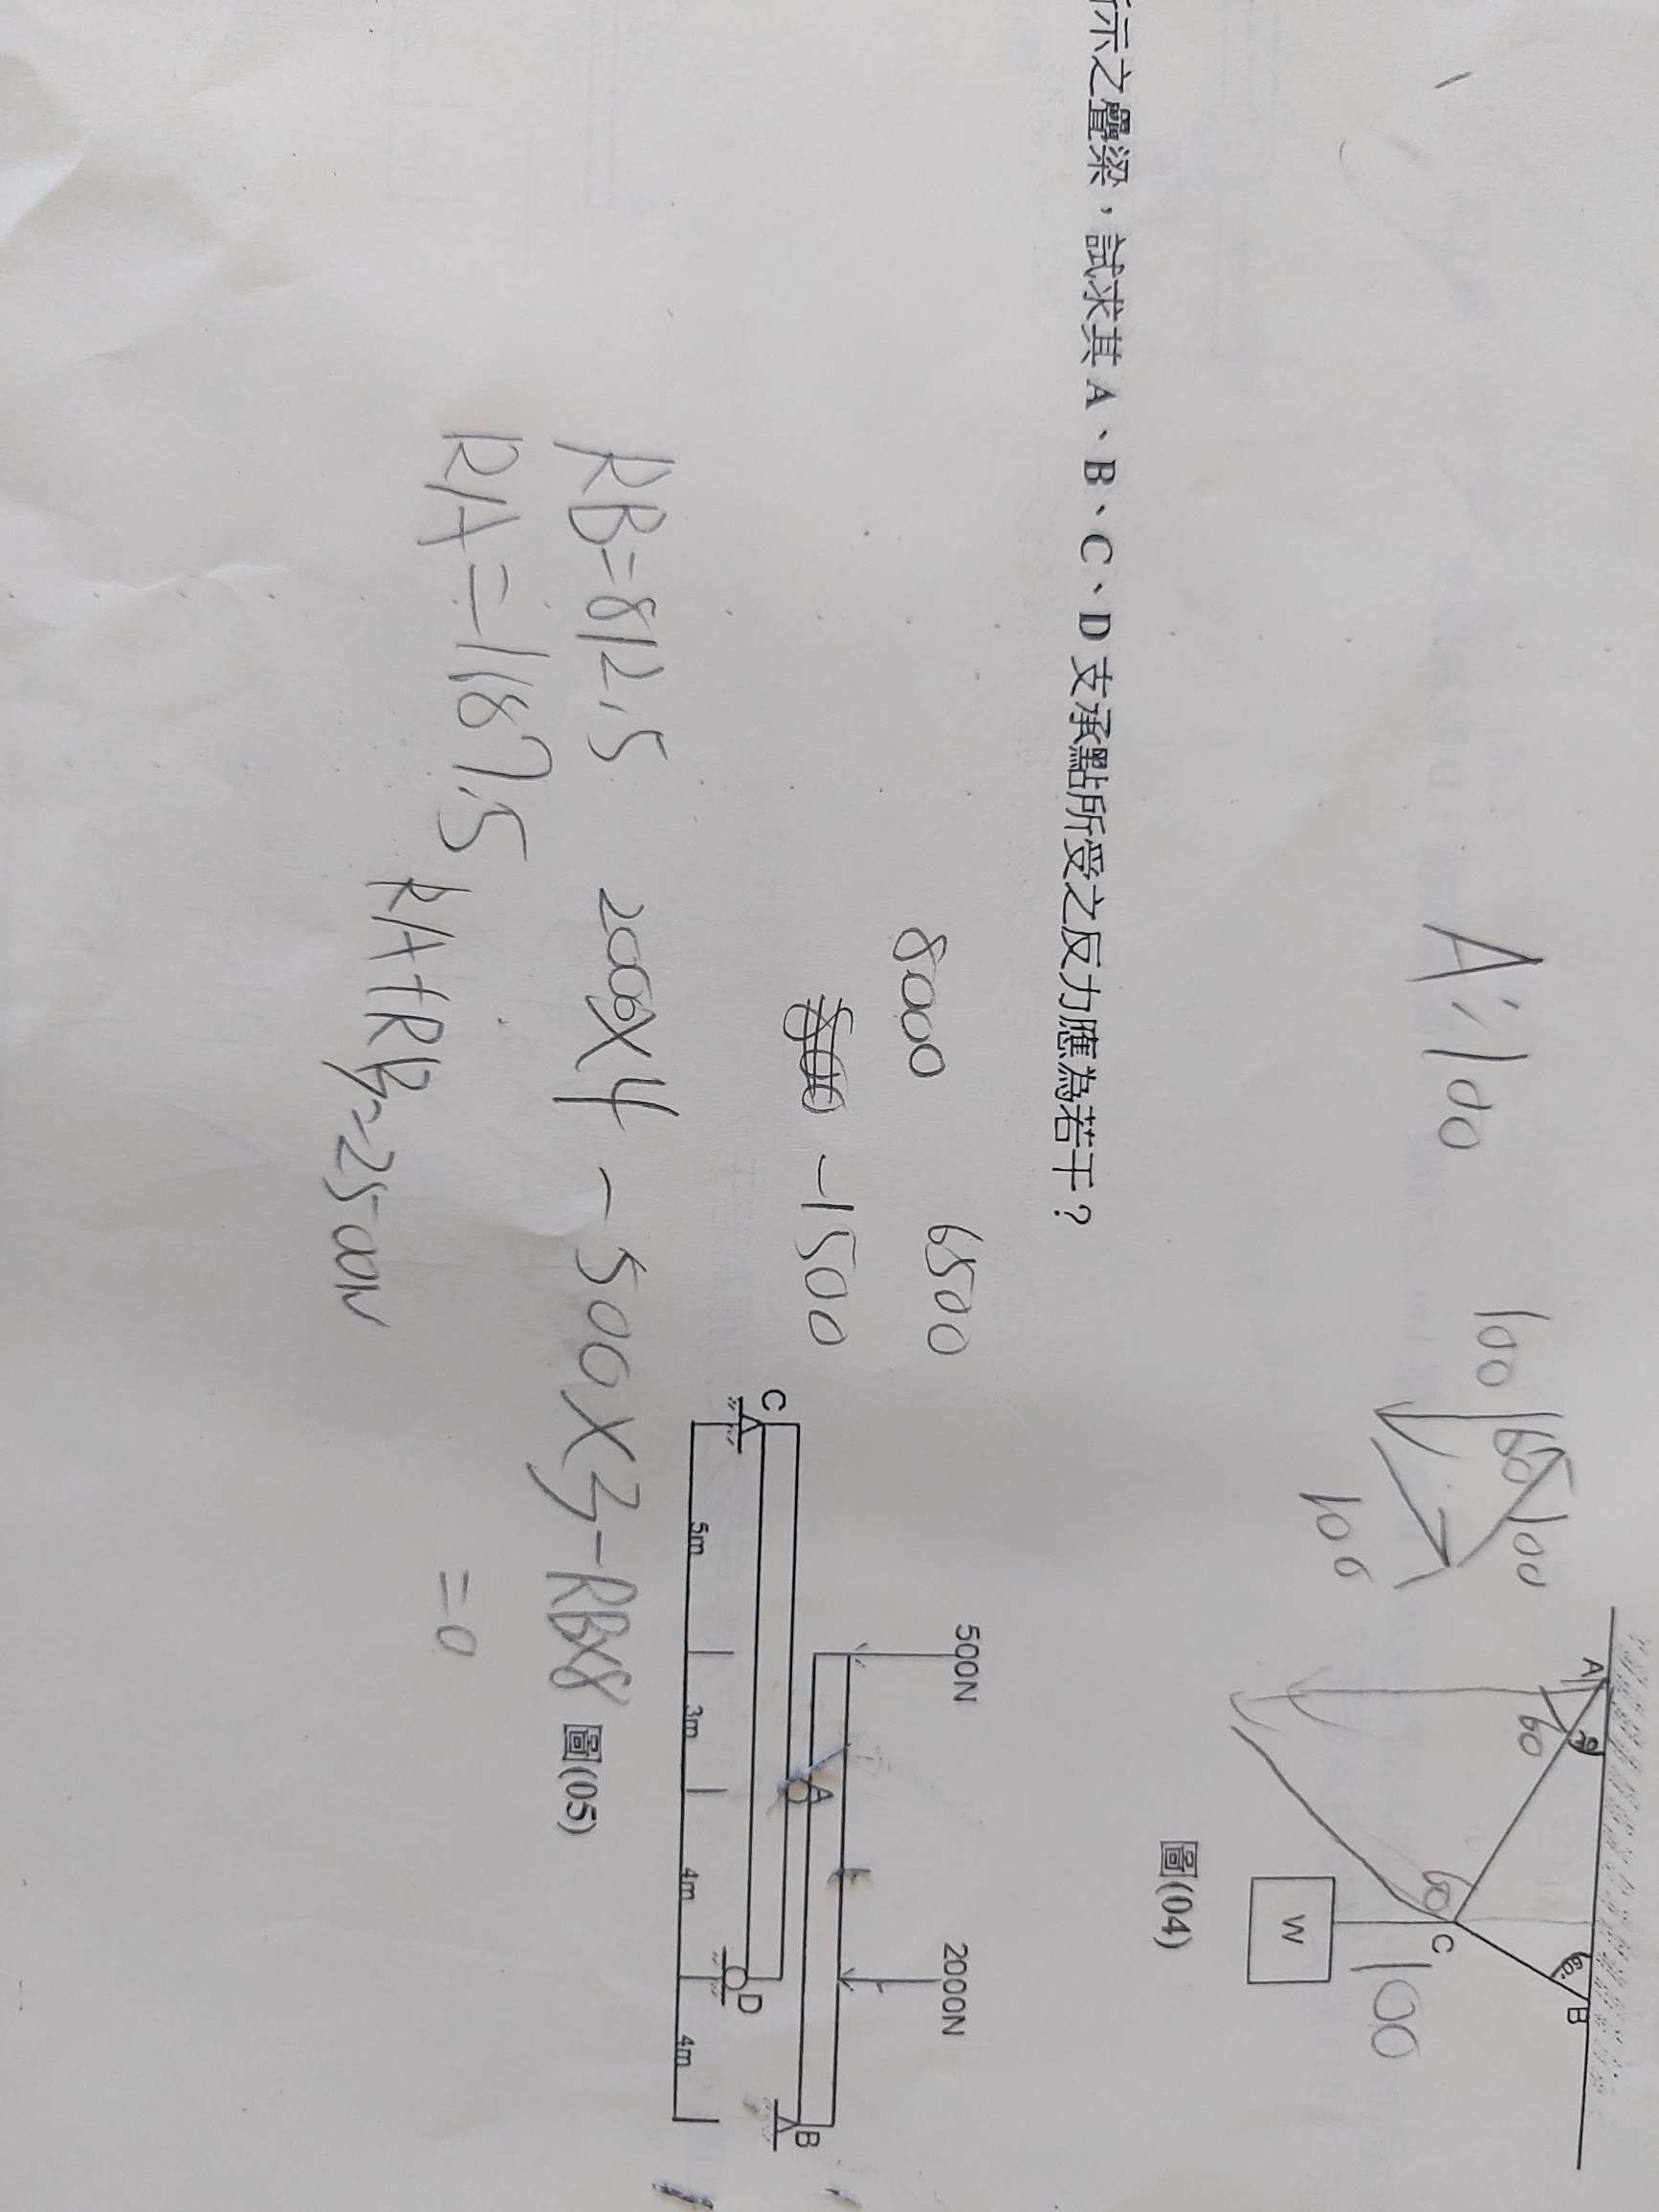 A=100
100
60
100
100
A
30
60
60
C
60°
B
100
W
圖(04)
示之疊梁，試求其 A、B、C、D 支承點所受之反力應為若干？
8000
6500
-1500
500N
2000N
A
C
D
B
5m
3m
4m
4m
圖(05)
RB=812.5
2000X4-500X3-RBX8
=0
RA=1187.5
RA+RB=2500N